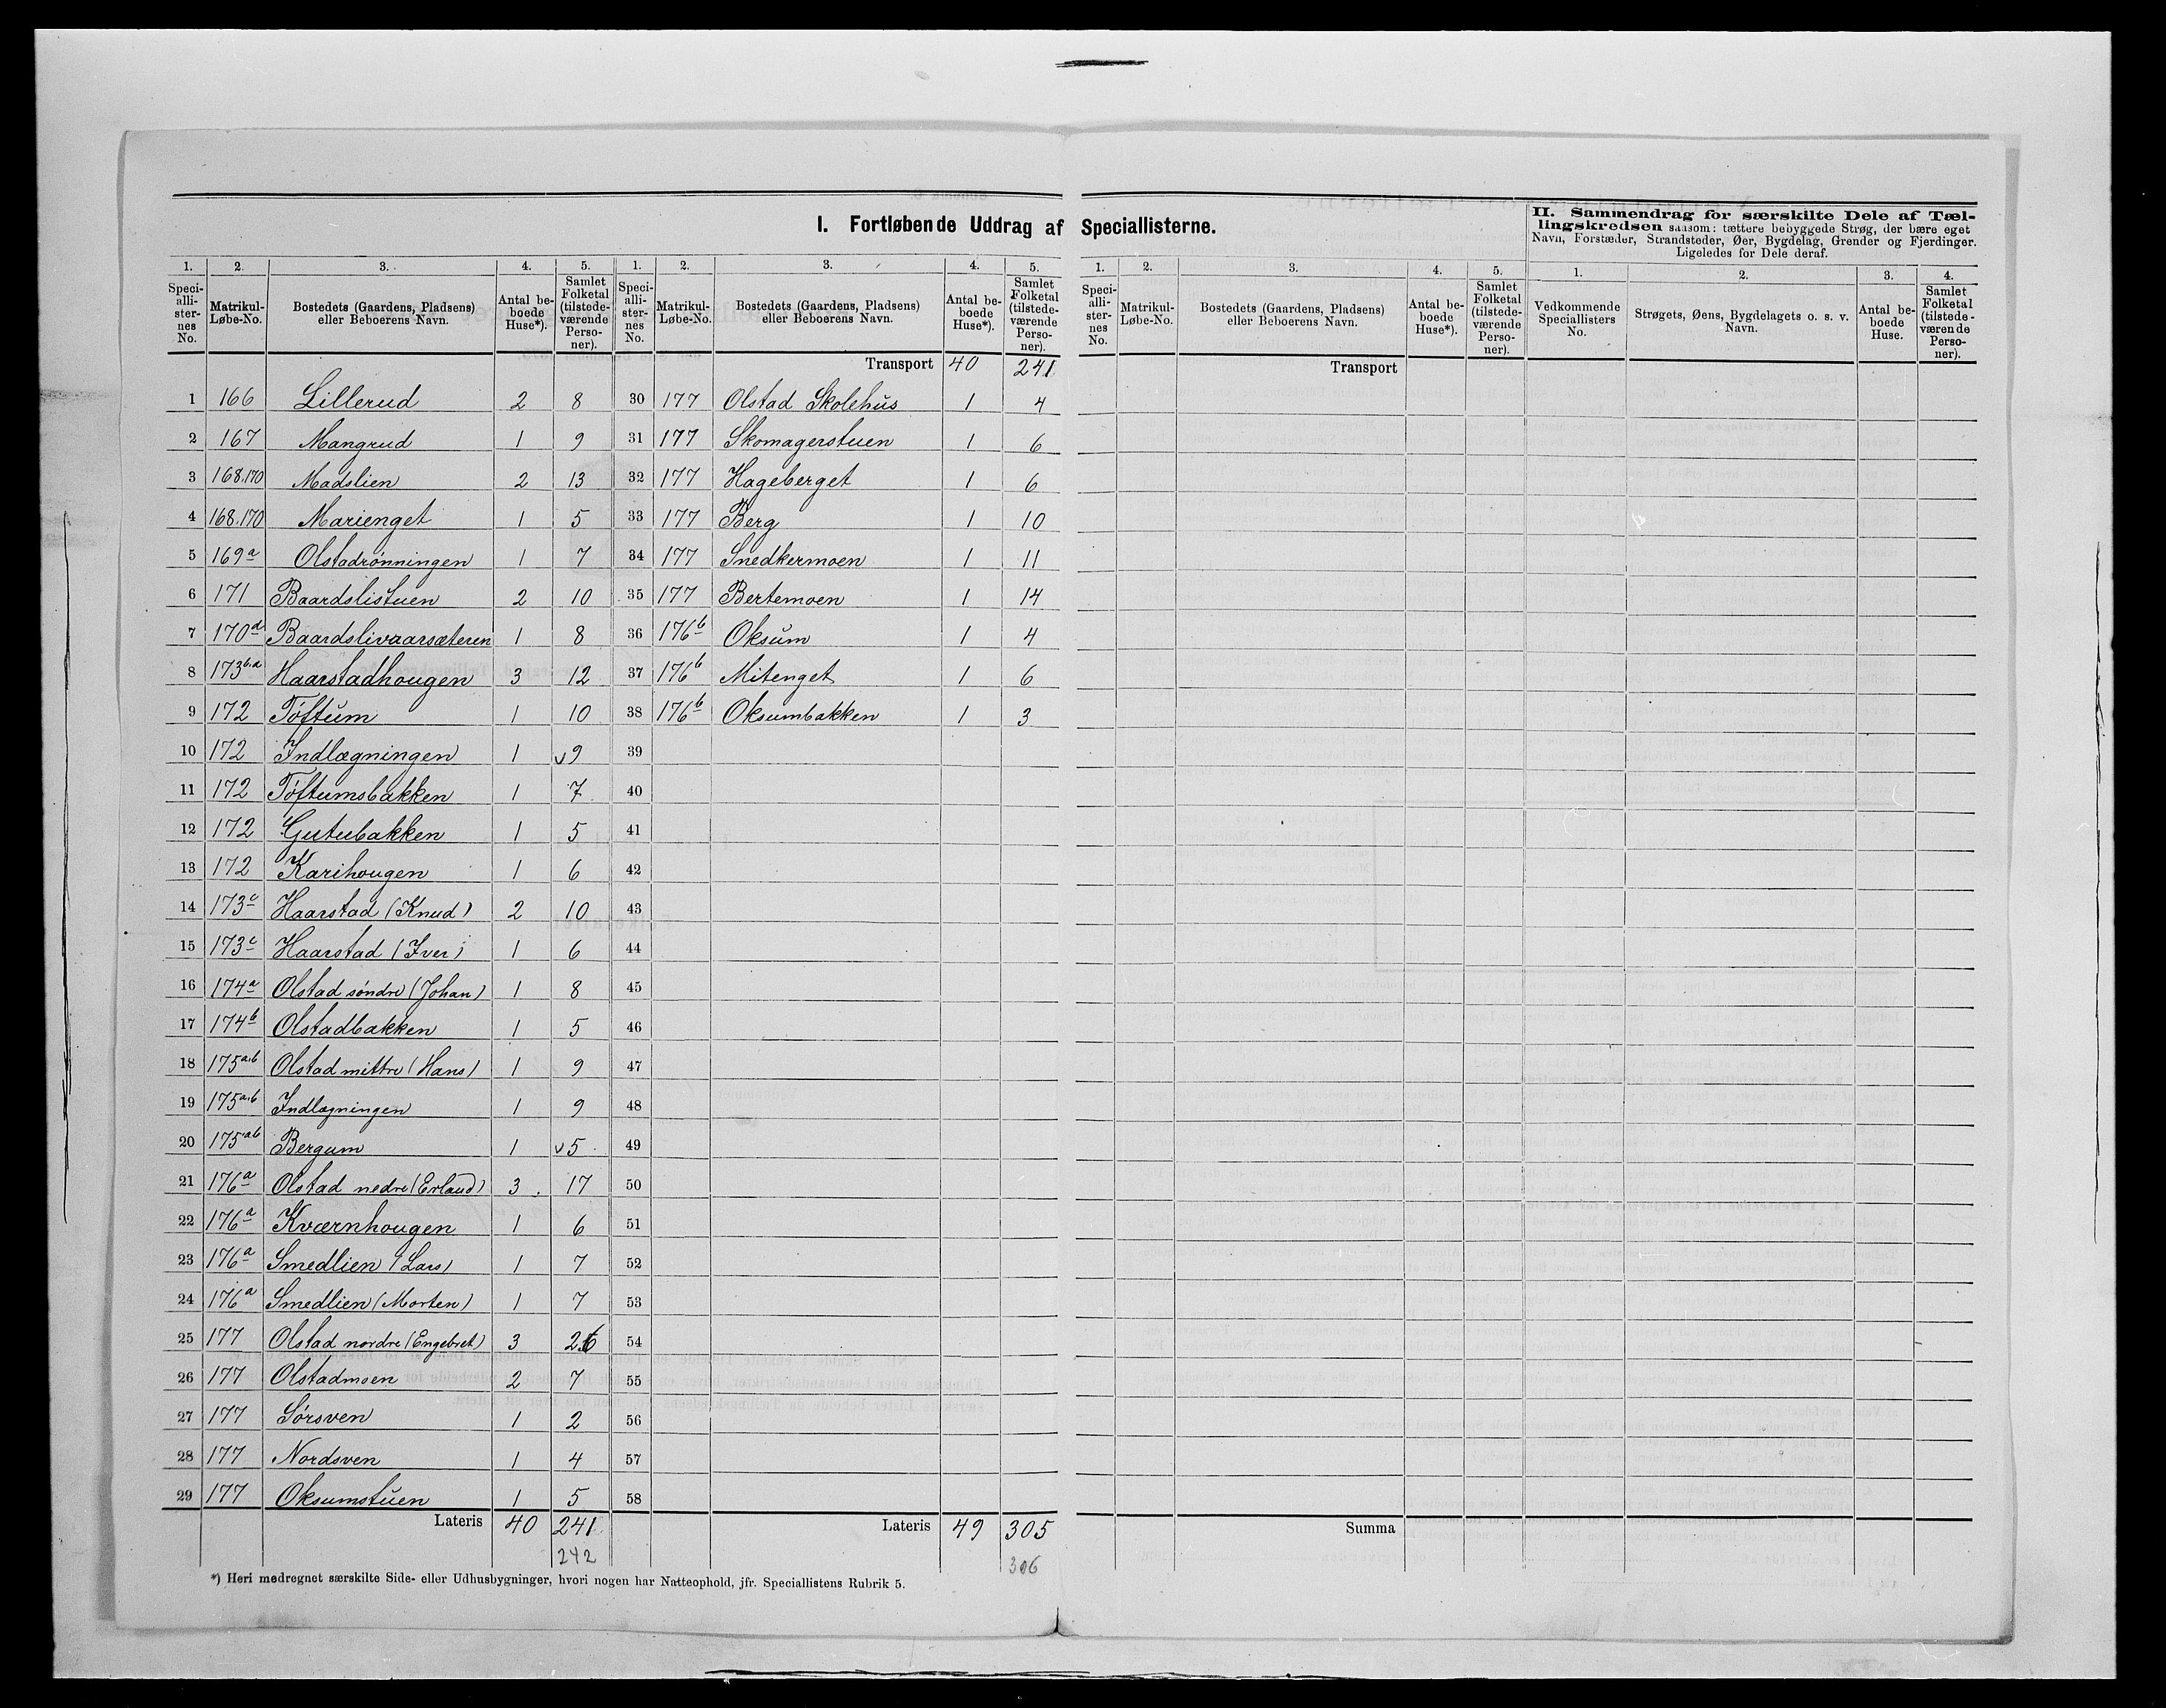 I. Fortløbende Uddrag af Speciallisterne.
1. 2. 3. 4. 5.
Specialli-sternes No. Matrikul-Løbe-No. Bostedets (Gaardens, Pladsens) eller Beboerens Navn. Antal beboede Huse*). Samlet Folketal (tilstedeværende Personer).
1 166 Lillerud 2 8
2 167 Mangrud 1 9
3 168.170 Madslien 2 13
4 168.170 Marienget 1 5
5 169a Olstadrønningen 1 7
6 171 Baardslistuen 2 10
7 170d Baardslivaarsæteren 1 8
8 173b.d Haarstadhougen 3 12
9 172 Töftum 1 10
10 172 Indlægningen 1 v9
11 172 Töftumsbakken 1 7
12 172 Gutubakken 1 5
13 172 Karihougen 1 6
14 173c Haarstad (Knud) 2 10
15 173c Haarstad (Iver) 1 6
16 174a Olstad søndre (Johan) 1 8
17 174b Olstadbakken 1 5
18 175a.b Olstad mittre (Hans) 1 9
19 175a.b Indlægningen 1 9
20 175ab Bergum 1 v5
21 176a Olstad nedre (Erland) 3 17
22 176a Kværnhougen 1 6
23 176a Smedlien (Lars) 1 7
24 176a Smedlien (Morten) 1 7
25 177 Olstad nordre (Engebret) 3 26
26 177 Olstadmoen 2 7
27 177 Sörsven 1 2
28 177 Nordsven 1 4
29 177 Oksumstuen 1 5
Lateris 40 241
242
1. 2. 3. 4. 5.
Specialli-sternes No. Matrikul-Løbe-No. Bostedets (Gaardens, Pladsens) eller Beboerens Navn. Antal beboede Huse*). Samlet Folketal (tilstedeværende Personer).
Transport 40 241
30 177 Olstad Skolehus 1 4
31 177 Skomagerstuen 1 6
32 177 Hageberget 1 6
33 177 Berg 1 10
34 177 Snedkermoen 1 11
35 177 Bertemoen 1 14
36 176b Oksum 1 4
37 176b Mitenget 1 6
38 176b Oksumbakken 1 3
39
40
41
42
43
44
45
46
47
48
49
50
51
52
53
54
55
56
57
58
Lateris 49 305
306
*) Heri medregnet særskilte Side- eller Udhusbygninger, hvori nogen har Natteophold, jfr. Speciallistens Rubrik 5.
1. 2. 3. 4. 5.
Specialli-sternes No. Matrikul-Løbe-No. Bostedets (Gaardens, Pladsens) eller Beboerens Navn. Antal beboede Huse*). Samlet Folketal (tilstedeværende Personer).
Transport
Summa
II. Sammendrag for særskilte Dele af Tæl-
lingskredsen saasom: tættere bebyggede Strøg, der bære eget
Navn, Forstæder, Strandsteder, Øer, Bygdelag, Grender og Fjerdinger.
Ligeledes for Dele deraf.
1. 2. 3. 4.
Vedkommende Speciallisters No. Strøgets, Øens, Bygdelagets o. s. v. Navn. Antal beboede Huse. Samlet Folketal (tilstedeværende Personer).